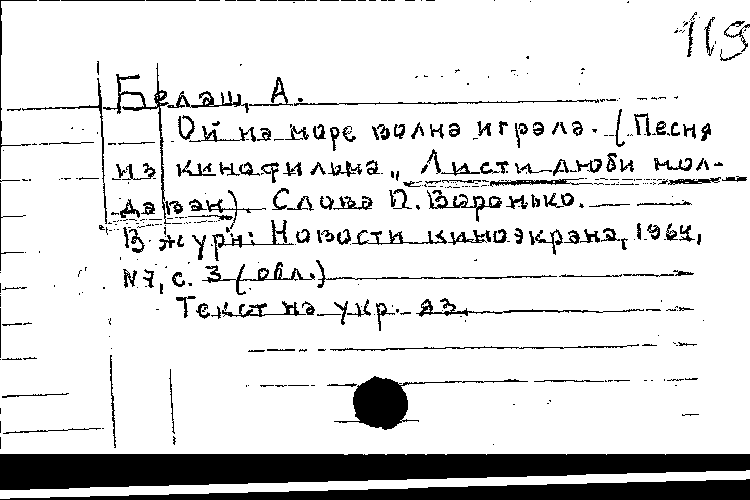 119
Белаш, А.
Ой на море волна играла. (Песня
из кинофильма „Листи люби мол-
даван). Слова П. Воронько.
В журн: Новости киноэкрана, 1964,
№7, с. 3 (обл.)
Текст на укр. яз.